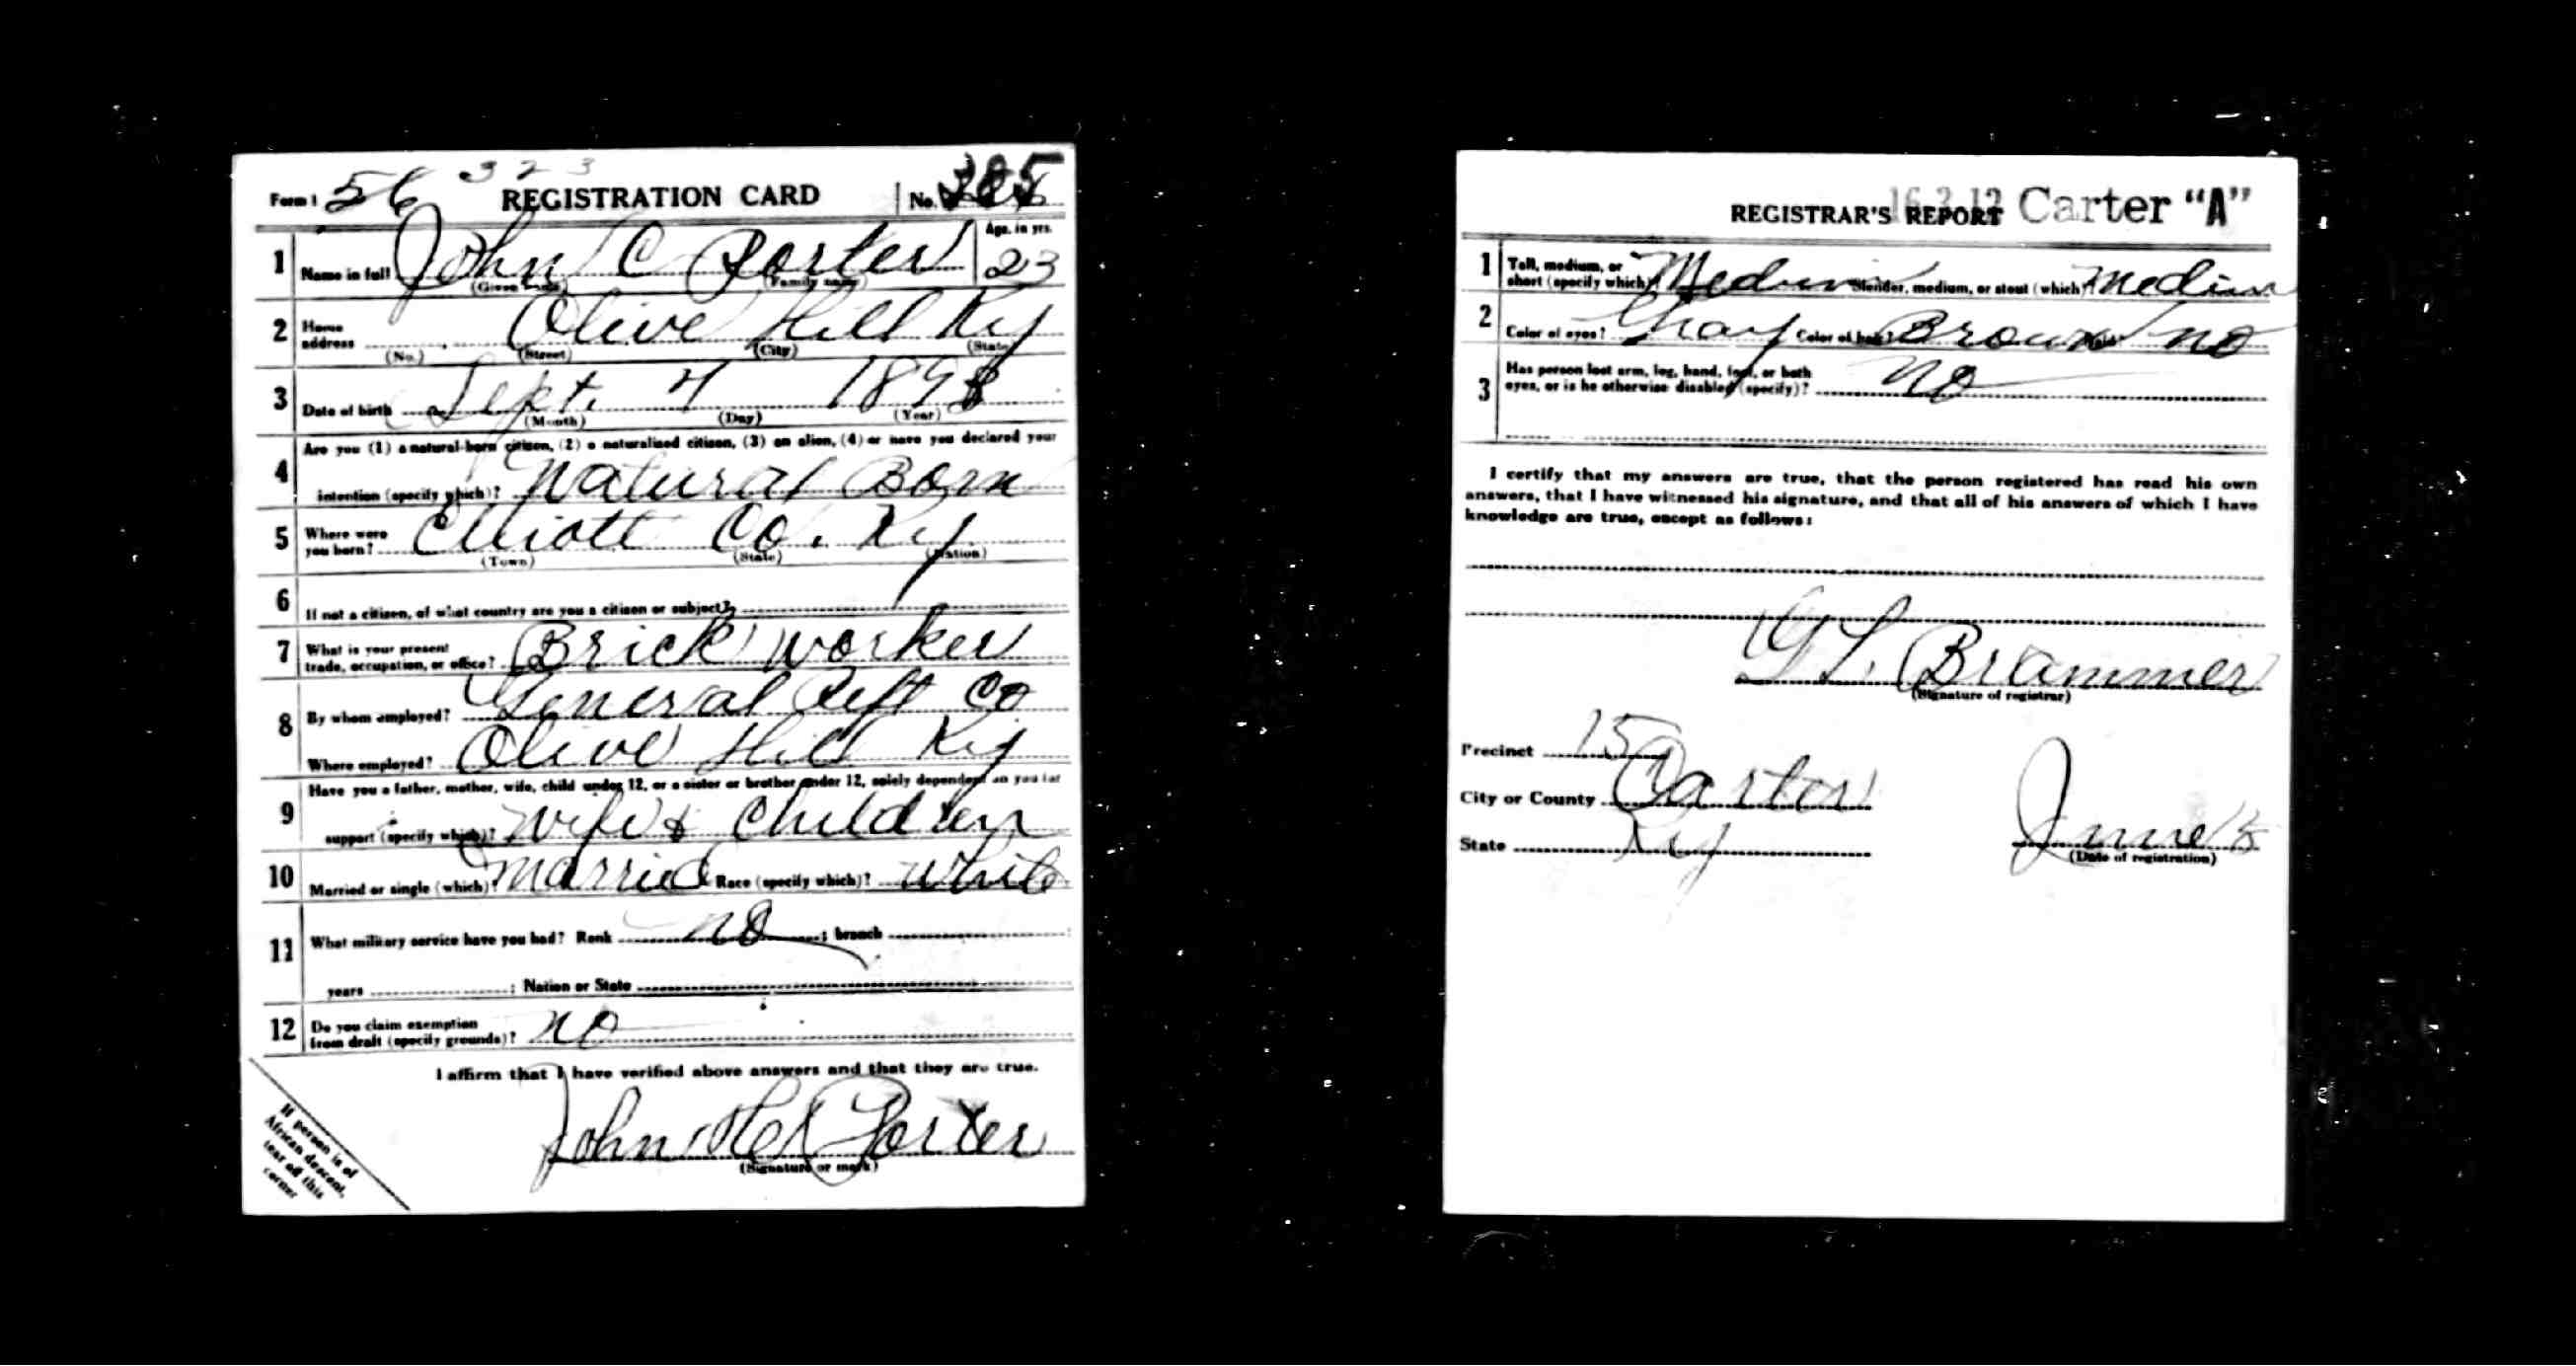 Form 1 56 323 REGISTRATION CARD No.
1 Name in full John C Porter Age, in yrs. 23
(Given name) (Family name)
2 Home address Olive Hill Ky
(No.) (Street) (City) (State)
3 Date of birth Sept. 4 1893
(Month) (Day) (Year)
4 Are you (1) a natural-born citizen, (2) a naturalized citizen, (3) an alien, (4) or have you declared your
intention (specify which)? Natural Born
5 Where were you born? Elliott Co. Ky
(Town) (State) (Nation)
6 If not a citizen, of what country are you a citizen or subject?
7 What is your present trade, occupation, or office? Brick worker
8 By whom employed? General Reft Co
Where employed? Olive Hill Ky
9 Have you a father, mother, wife, child under 12, or a sister or brother under 12, solely dependent on you for
support (specify which)? Wife & Children
10 Married or single (which)? Married Race (specify which)? White
11 What military service have you had? Rank no ; branch
years ; Nation or State
12 Do you claim exemption from draft (specify grounds)? no
I affirm that I have verified above answers and that they are true.
John Porter
(Signature or mark)
If person is of
African descent,
tear off this
corner
REGISTRAR'S REPORT Carter "A"
1 Tall, medium, or short (specify which)? Medium Slender, medium, or stout (which)? Medium
2 Color of eyes? Gray Color of hair? Brown Bald? no
3 Has person lost arm, leg, hand, foot, or both
eyes, or is he otherwise disabled (specify)? no
I certify that my answers are true, that the person registered has read his own
answers, that I have witnessed his signature, and that all of his answers of which I have
knowledge are true, except as follows:
G L. Brammer
(Signature of registrar)
Precinct 15
City or County Carter
State Ky
June 5
(Date of registration)